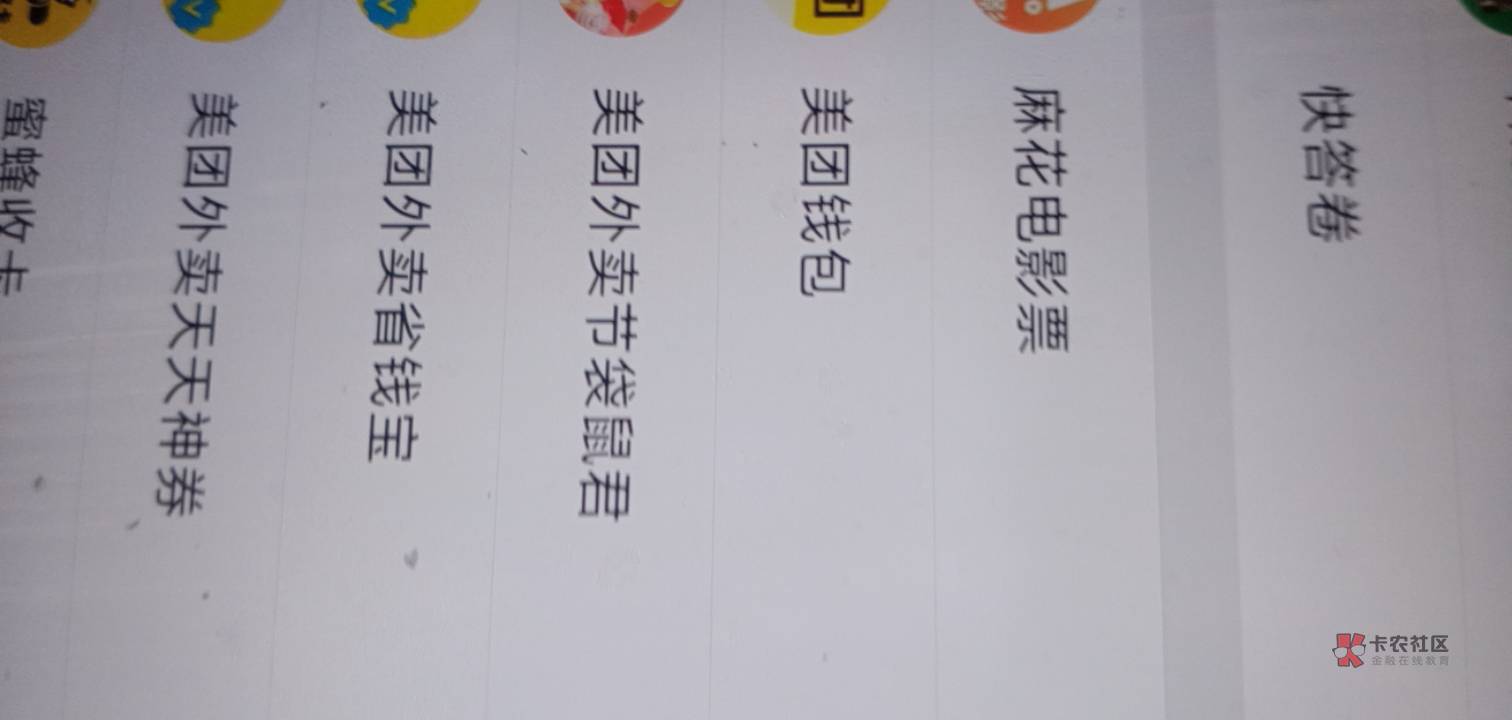 快答卷
麻花电影票
美团钱包
美团外卖节袋鼠君
美团外卖省钱宝
美团外卖天天神券
蜜蜂收卡
团
卡农社区
金融在线教育